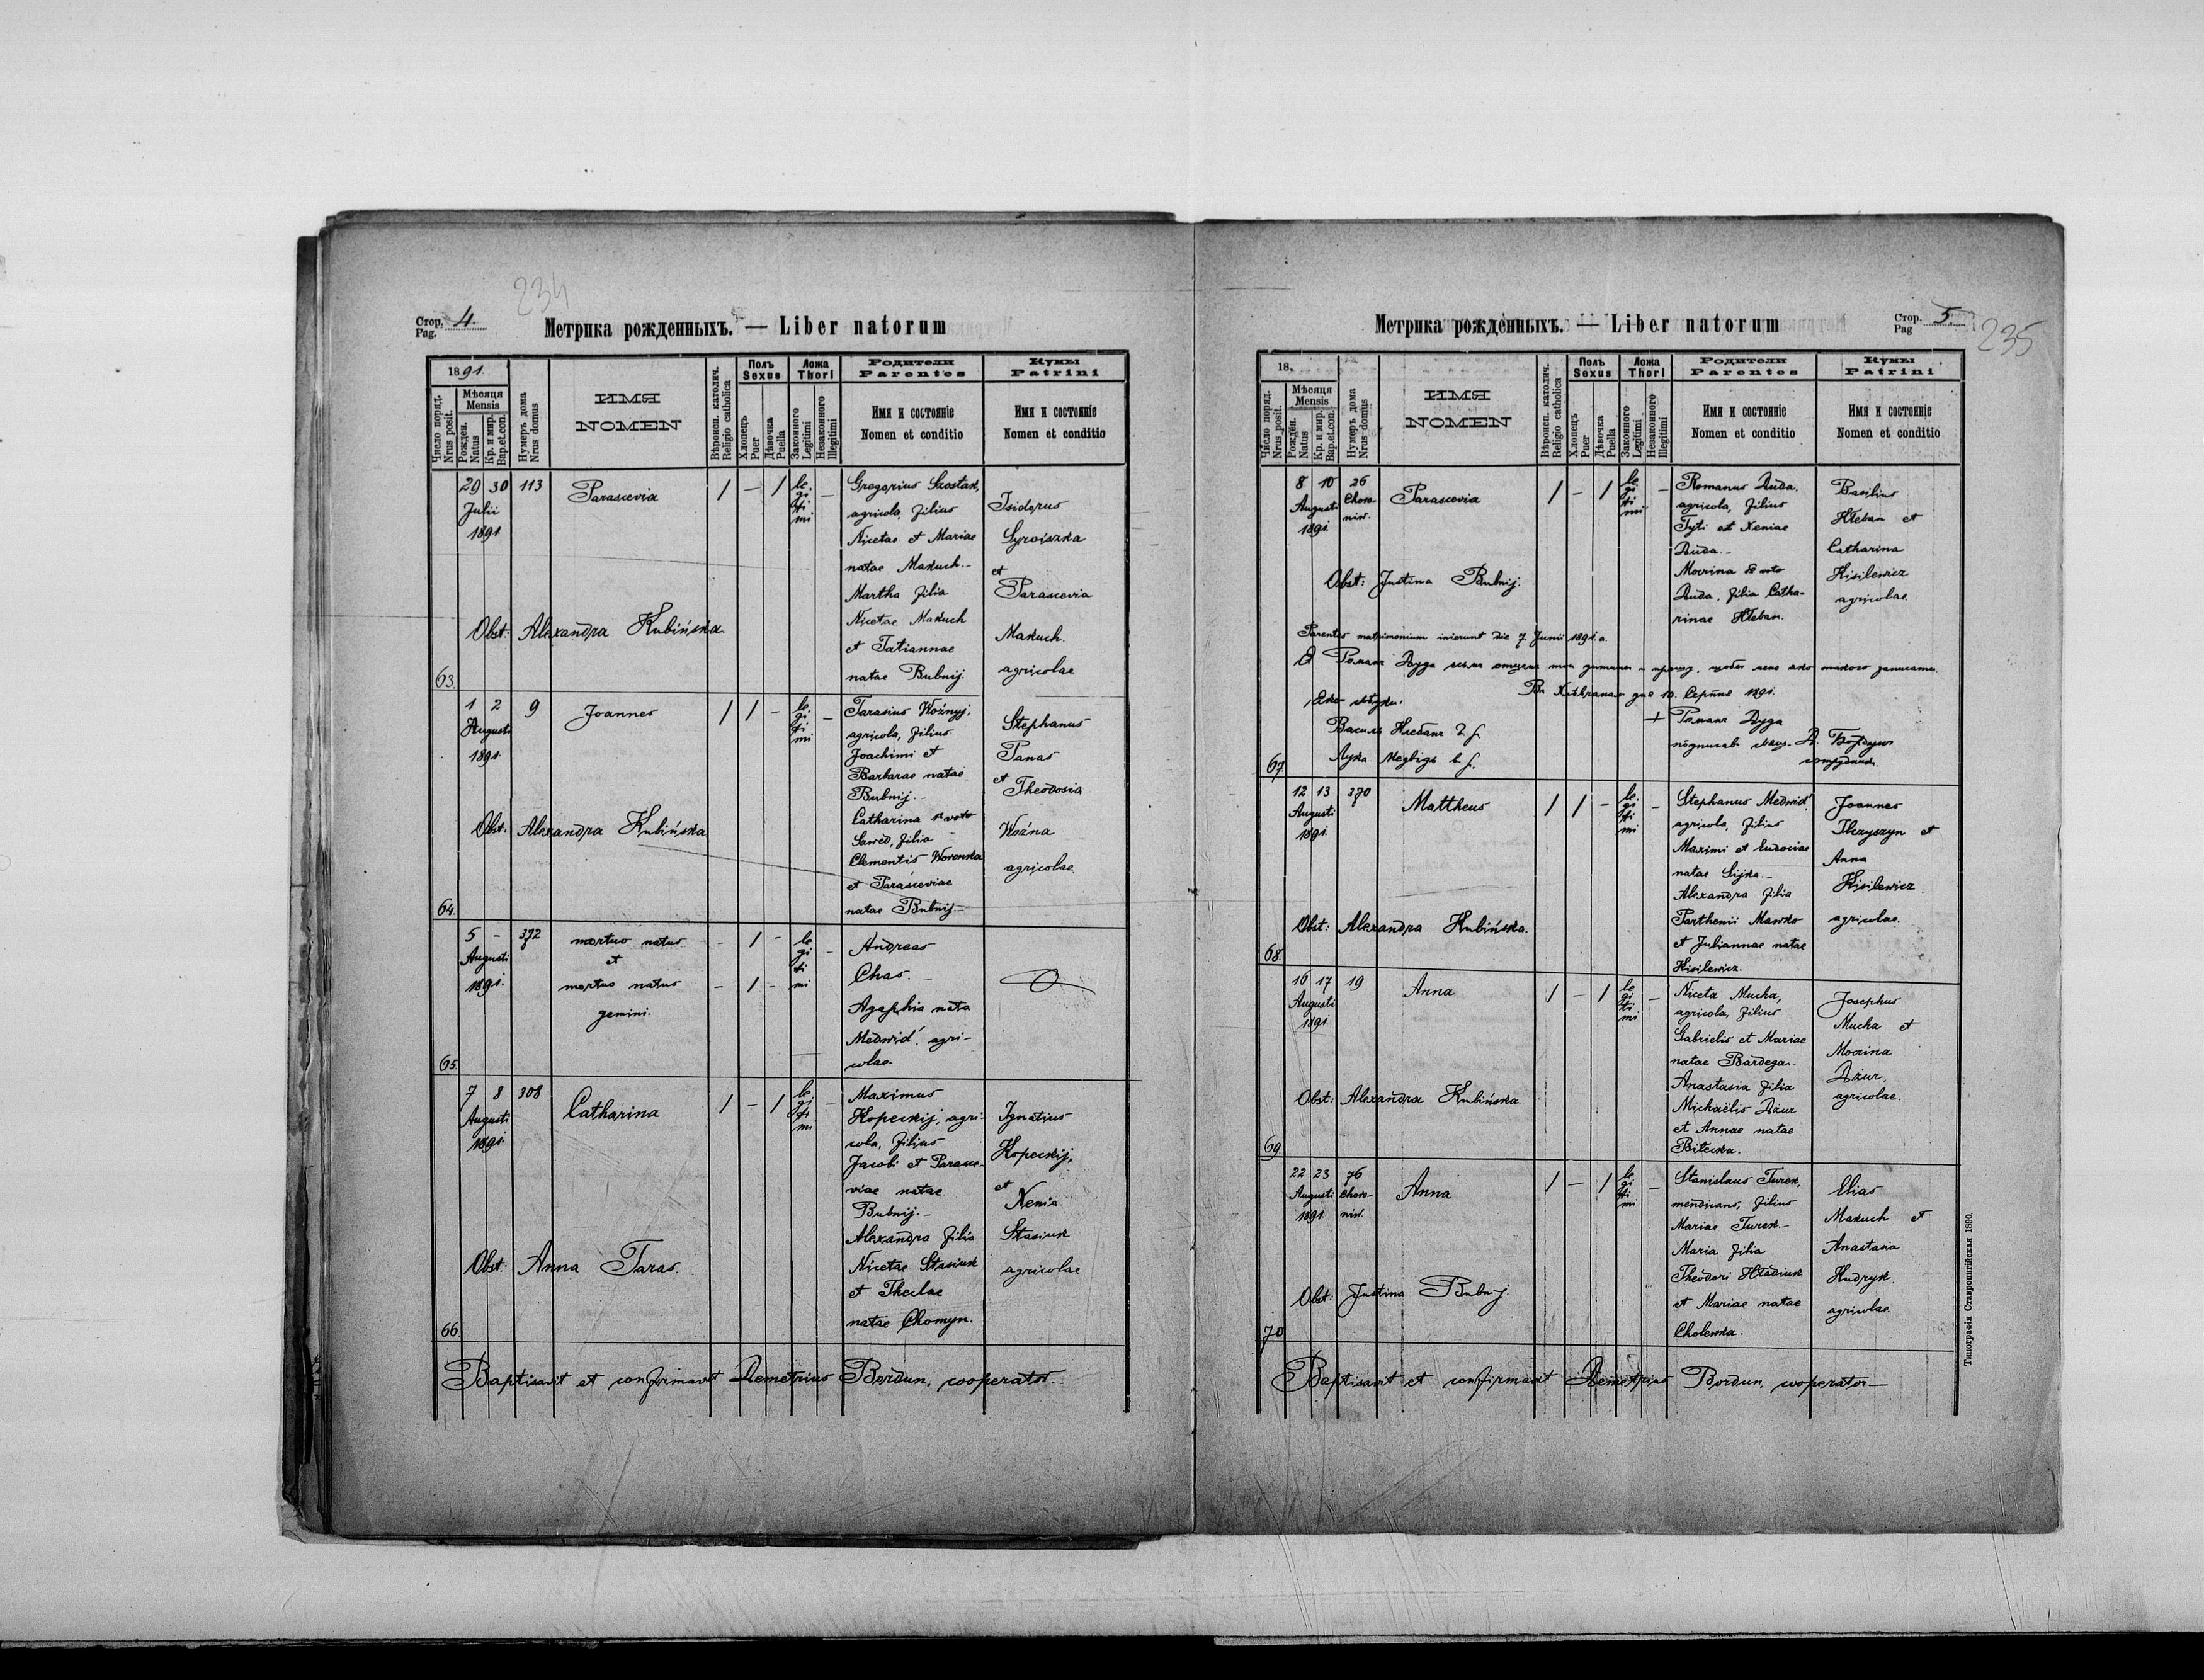 234
Стор. Pag. 4.
Метрика рожденныхъ. — Liber natorum
1891.
Число поряд. Nrus posit.
Мѣсяця Mensis
Рожден. Natus
Кр. и мир. Bap. et con.
Нумеръ дома Nrus domus
ИМЯ NOMEN
Вѣроисп. католич. Religio catholica
Полъ Sexus
Хлопецъ Puer
Дѣвочка Puella
Ложа Thori
Законного Legitimi
Незаконного Illegitimi
Родители Parentes
Имя и состояніе
Nomen et conditio
Кумы Patrini
Имя и состояніе
Nomen et conditio
63.
29 30 113 Parascevia / – / legitimi –
Julii
1891
Gregorius Szostak,
agricola, filius
Nicetae et Mariae
natae Makuch.-
Martha filia
Nicetae Makuch
et Tatiannae
natae Bubnij.
Isidorus
Syroiszka
et
Parascevia
Makuch.
agricolae
Obst: Alexandra Kubińska
64.
1 2 9 Joannes / / – legitimi –
Augusti
1891
Tarasius Woźnyj,
agricola, filius
Joachimi et
Barbarae natae
Bubnij.-
Catharina 1º voto
filia
Clementis Woronka
et Parasceviae
natae Bubnij-
Stephanus
Panas
et
Theodosia
Woźna
agricolae
Obst. Alexandra Kubińska
65.
5 – 372 mortuo natus – / – legitimi –
Augusti
1891.
et
mortuo natus – / –
gemini.
Andreas
Chas.-
Agaphia nata
Medwid', agri-
colae.
66.
7 8 308 Catharina / – / legitimi –
Augusti
1891.
Maximus
Kopeckij, agri-
cola, filius
Jacobi et Parasce-
viae natae
Bubnij.-
Alexandra filia
Nicetae Stasiuk
et Theclae
natae Chomyn.
Ignatius
Kopeckij,
et
Xenia
Stasiuk
agricolae
Obst: Anna Taras.
Baptisavit et confirmavit Demetrius Bordun, cooperator.-
Метрика рожденныхъ. — Liber natorum
Стор. Pag 5.
235
18
Число поряд. Nrus posit.
Мѣсяця Mensis
Рожден. Natus
Кр. и мир. Bap. et con.
Нумеръ дома Nrus domus
ИМЯ NOMEN
Вѣроисп. католич. Religio catholica
Полъ Sexus
Хлопецъ Puer
Дѣвочка Puella
Ложа Thori
Законного Legitimi
Незаконного Illegitimi
Родители Parentes
Имя и состояніе
Nomen et conditio
Кумы Patrini
Имя и состояніе
Nomen et conditio
67.
8 10 26 Parascevia / – / legitimi –
Augusti
1891.
Romanus Duda,
agricola, filius
Tyti et Xeniae
Duda.-
voto
Duda, filia Catha-
rinae Hłeban.
Basilius
Hłeban et
Catharina
Kisilewicz
agricolae.
Obst: Justina Bubnij.
Parentes matrimonium inierunt die 7 Junii 1891. a.
Я Романъ Дуда
дня 10. Серпня 1891.
Василь Хлебанъ
Лука Медвѣдь
+ Романъ Дуда
Д. Бордунъ
сотрудникъ.
68.
12 13 370 Mattheus / / – legitimi –
Augusti
1891.
Stephanus Medwid',
agricola, filius
Maximi et Eudociae
natae
Alexandra filia
Parthenii Mawko
et Juliannae natae
Kisilewicz.
Joannes
Ilczyszyn et
Anna
Kisilewicz.
agricolae.
Obst: Alexandra Kubińska.
69.
16 17 19 Anna / – / legitimi –
Augusti
1891
Niceta Mucha,
agricola, filius
Gabrielis et Mariae
natae Bardega.-
Anastasia filia
Michaëlis Dżur
et Annae natae
Biłecka.
Josephus
Mucha et
Dżur.
agricolae.
Obst: Alexandra Kubińska
70
22 23 76 Anna / – / legitimi –
Augusti
1891.
Stanislaus Turek,
mendicans, filius
Mariae Turek.-
Maria filia
Theodori Hładiuk
et Mariae natae
Cholewka.
Elias
Makuch et
Anastasia
Kudryk.
agricolae.
Obst: Justina Bubnij
Baptisavit et confirmavit Demetrius Bordun, cooperator-
Типографія Ставропигійская 1890.